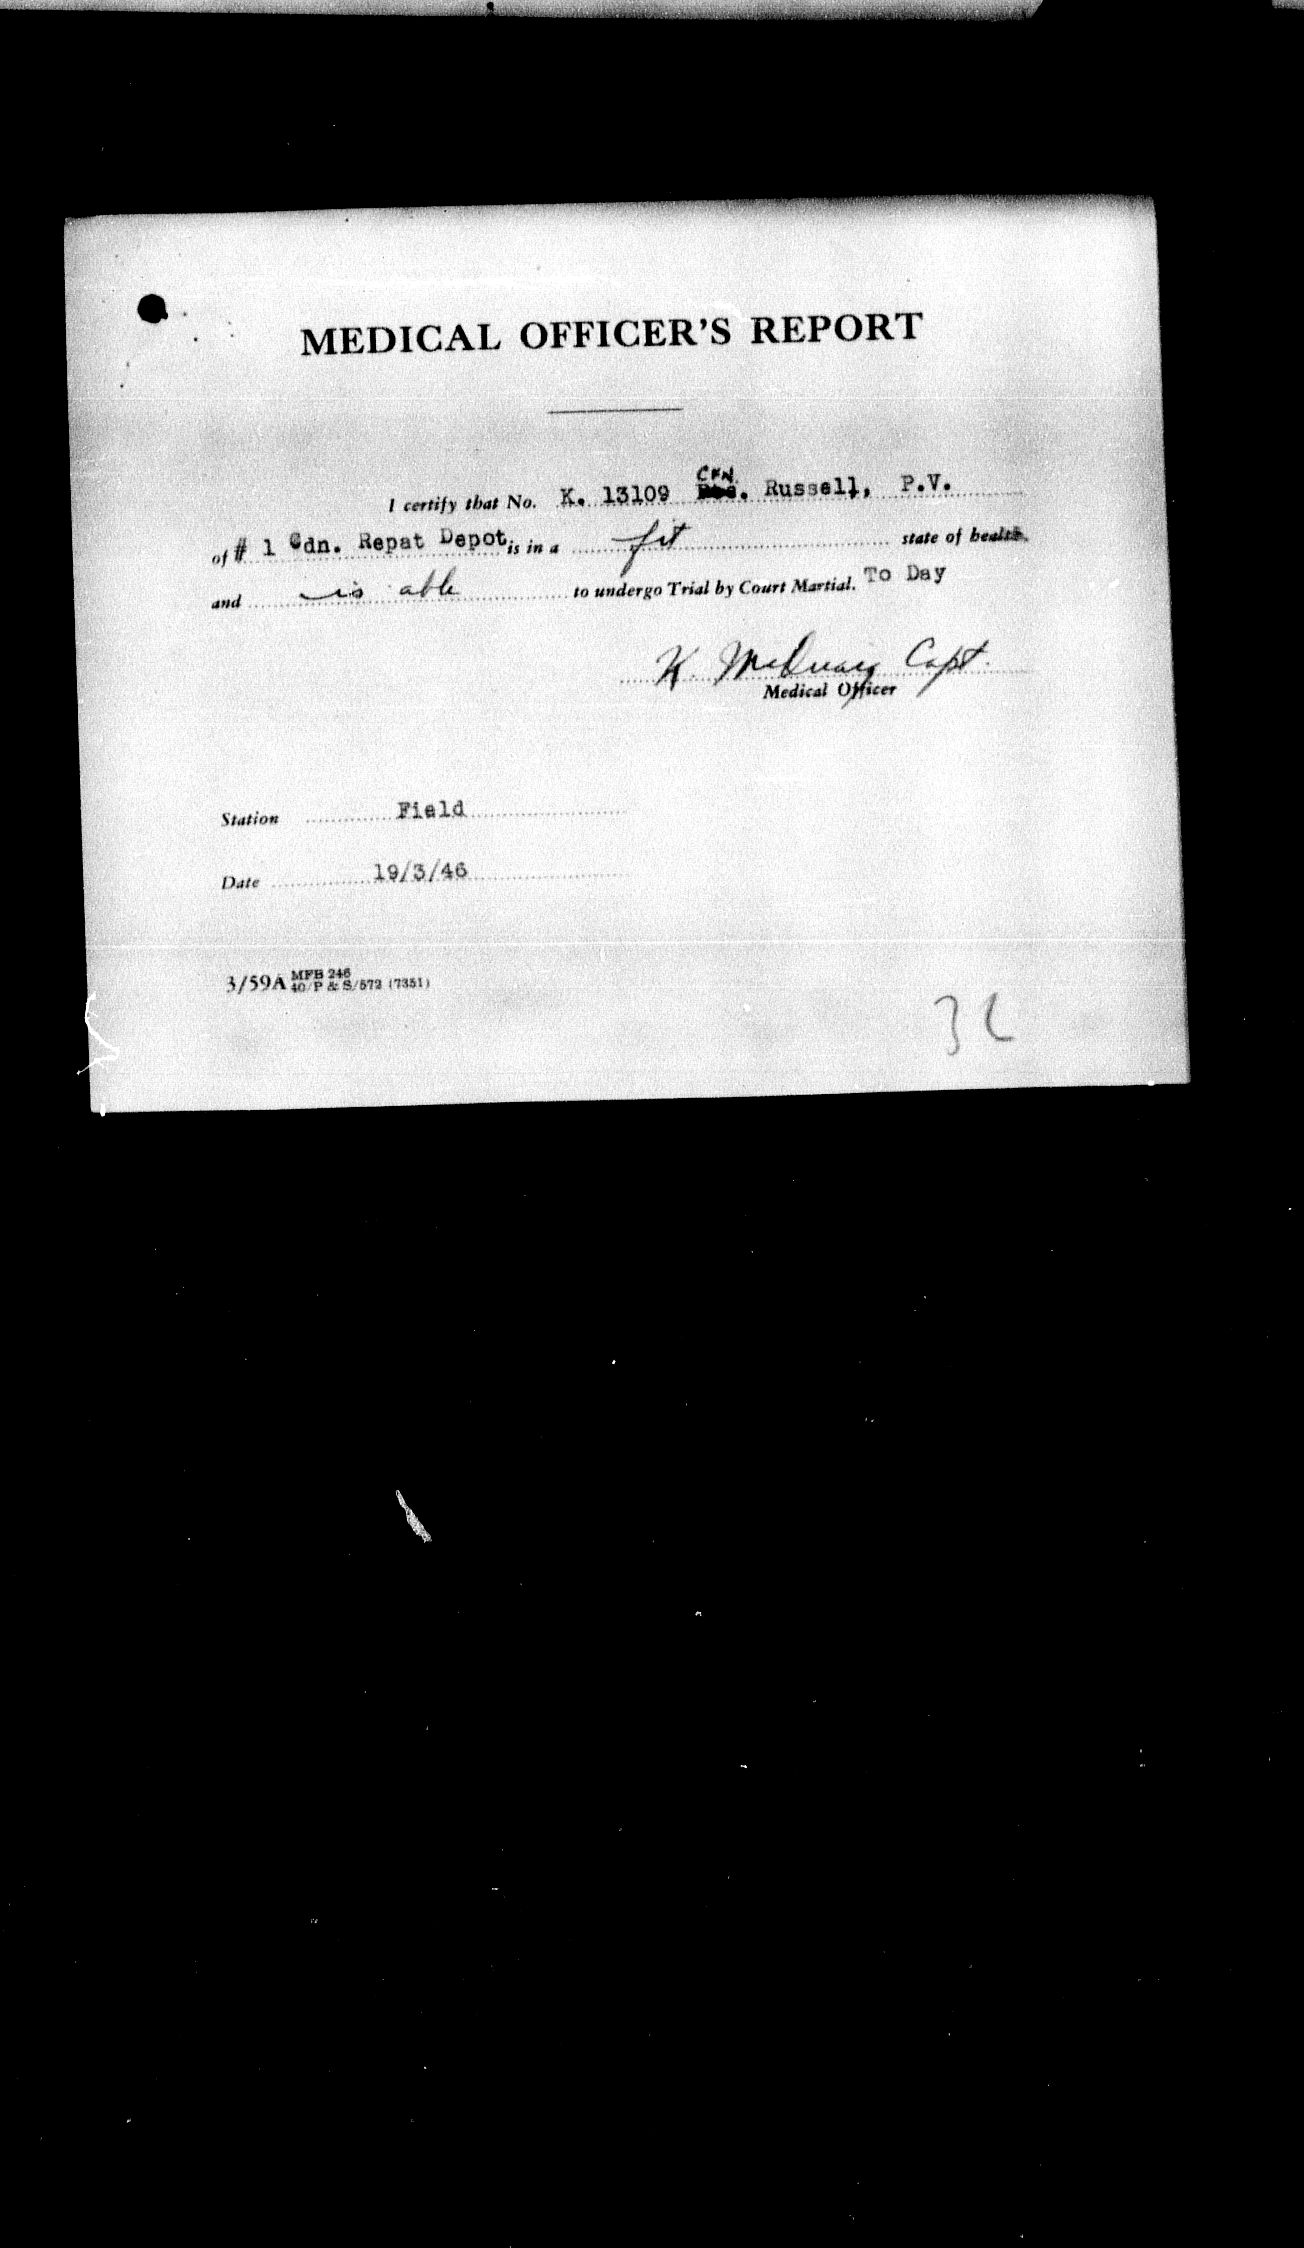 MEDICAL OFFICER'S REPORT
I certify that No. K. 13109 CFN. Russell, P.V.
of # 1 Cdn. Repat Depot, is in a fit state of health
and is able to undergo Trial by Court Martial. To Day
K. McQuaig Capt.
Medical Officer
Station Field
Date 19/3/46
3/59A MFB 246
40/P & S/572 (7351)